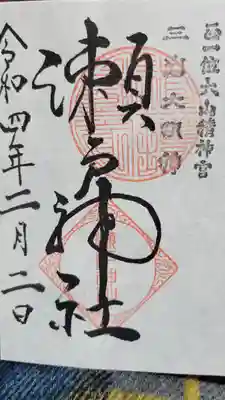 正一位大山積神宮
三島大明神
瀬戸神社
令和四年二月二日